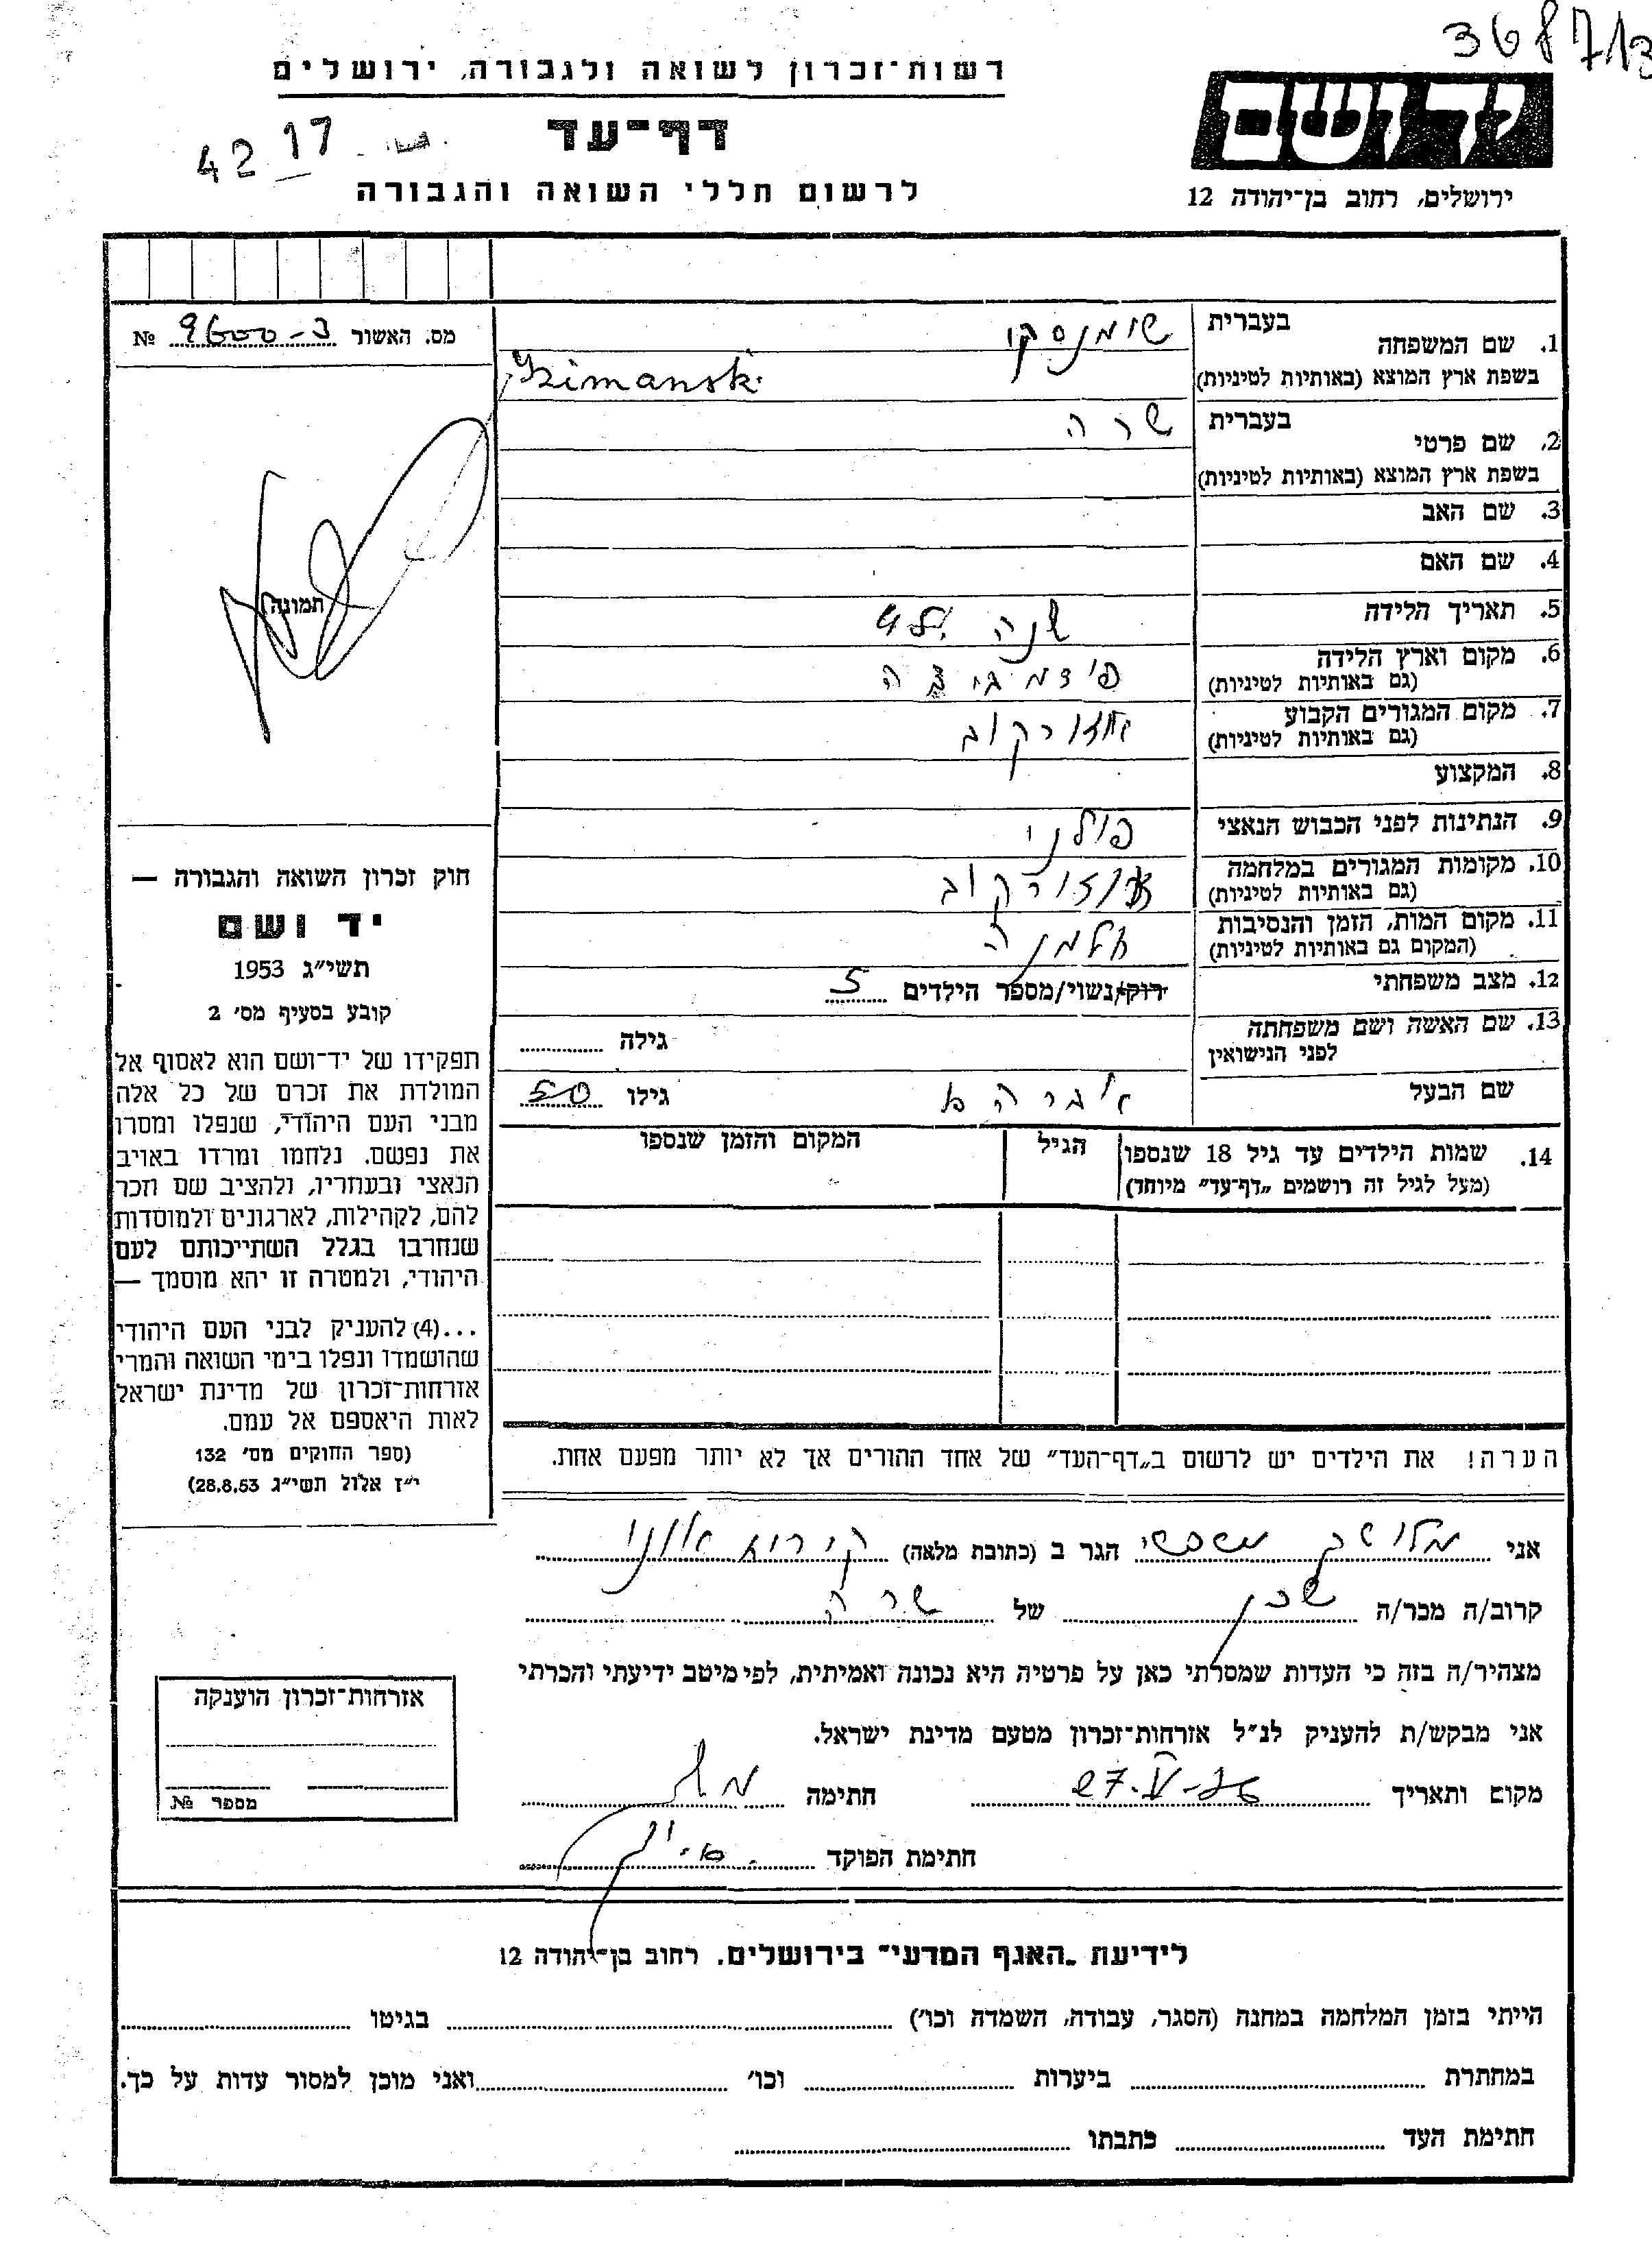 368713
רשות־זכרון לשואה ולגבורה, ירושלים
יד ושם
דף־עד
42 17
לרשום חללי השואה והגבורה
ירושלים, רחוב בן־יהודה 12
מס. האשור № 9600-ב
1. שם המשפחה
בעברית שומנסקי
בשפת ארץ המוצא (באותיות לטיניות) Szimanski
2. שם פרטי
בעברית שרה
בשפת ארץ המוצא (באותיות לטיניות)
3. שם האב
4. שם האם
5. תאריך הלידה שנה
6. מקום וארץ הלידה
(גם באותיות לטיניות)
7. מקום המגורים הקבוע אוזורקוב
(גם באותיות לטיניות)
8. המקצוע
9. הנתינות לפני הכבוש הנאצי פולני
10. מקומות המגורים במלחמה אוזורקוב
(גם באותיות לטיניות)
11. מקום המות, הזמן והנסיבות חלמנה
(המקום גם באותיות לטיניות)
12. מצב משפחתי רוק/נשוי/מספר הילדים 5
13. שם האשה ושם משפחתה גילה
לפני הנישואין
שם הבעל אברהם גילו 50
14. שמות הילדים עד גיל 18 שנספו הגיל המקום והזמן שנספו
(מעל לגיל זה רושמים „דף־עד” מיוחד)
תמונה
חוק זכרון השואה והגבורה —
יד ושם
תשי״ג 1953
קובע בסעיף מס׳ 2
תפקידו של יד־ושם הוא לאסוף אל
המולדת את זכרם של כל אלה
מבני העם היהודי, שנפלו ומסרו
את נפשם. נלחמו ומרדו באויב
הנאצי ובעחריו, ולהציב שם וזכר
להם, לקהילות, לארגונים ולמוסדות
שנחרבו בגלל השתייכותם לעם
היהודי, ולמטרה זו יהא מוסמך —
...(4) להעניק לבני העם היהודי
שהושמדו ונפלו בימי השואה והמרי
אזרחות־זכרון של מדינת ישראל
לאות היאספם אל עמם.
(ספר החוקים מס׳ 132
י״ז אלול תשי״ג 28.8.53)
הערה! את הילדים יש לרשום ב„דף־העד” של אחד ההורים אך לא יותר מפעם אחת.
אני הגר ב (כתובת מלאה) קירית אונו
קרוב/ה מכר/ה שכן של שרה
מצהיר/ה בזה כי העדות שמסרתי כאן על פרטיה היא נכונה ואמיתית, לפי מיטב ידיעתי והכרתי
אני מבקש/ת להעניק לנ״ל אזרחות־זכרון מטעם מדינת ישראל.
מקום ותאריך 27.V-56 חתימה
חתימת הפוקד
אזרחות־זכרון הוענקה
מספר №
לידיעת „האגף המדעי” בירושלים. רחוב בן־יהודה 12
הייתי בזמן המלחמה במחנה (הסגר, עבודה, השמדה וכו׳) בגיטו
במחתרת ביערות וכו׳ ואני מוכן למסור עדות על כך.
חתימת העד כתבתו